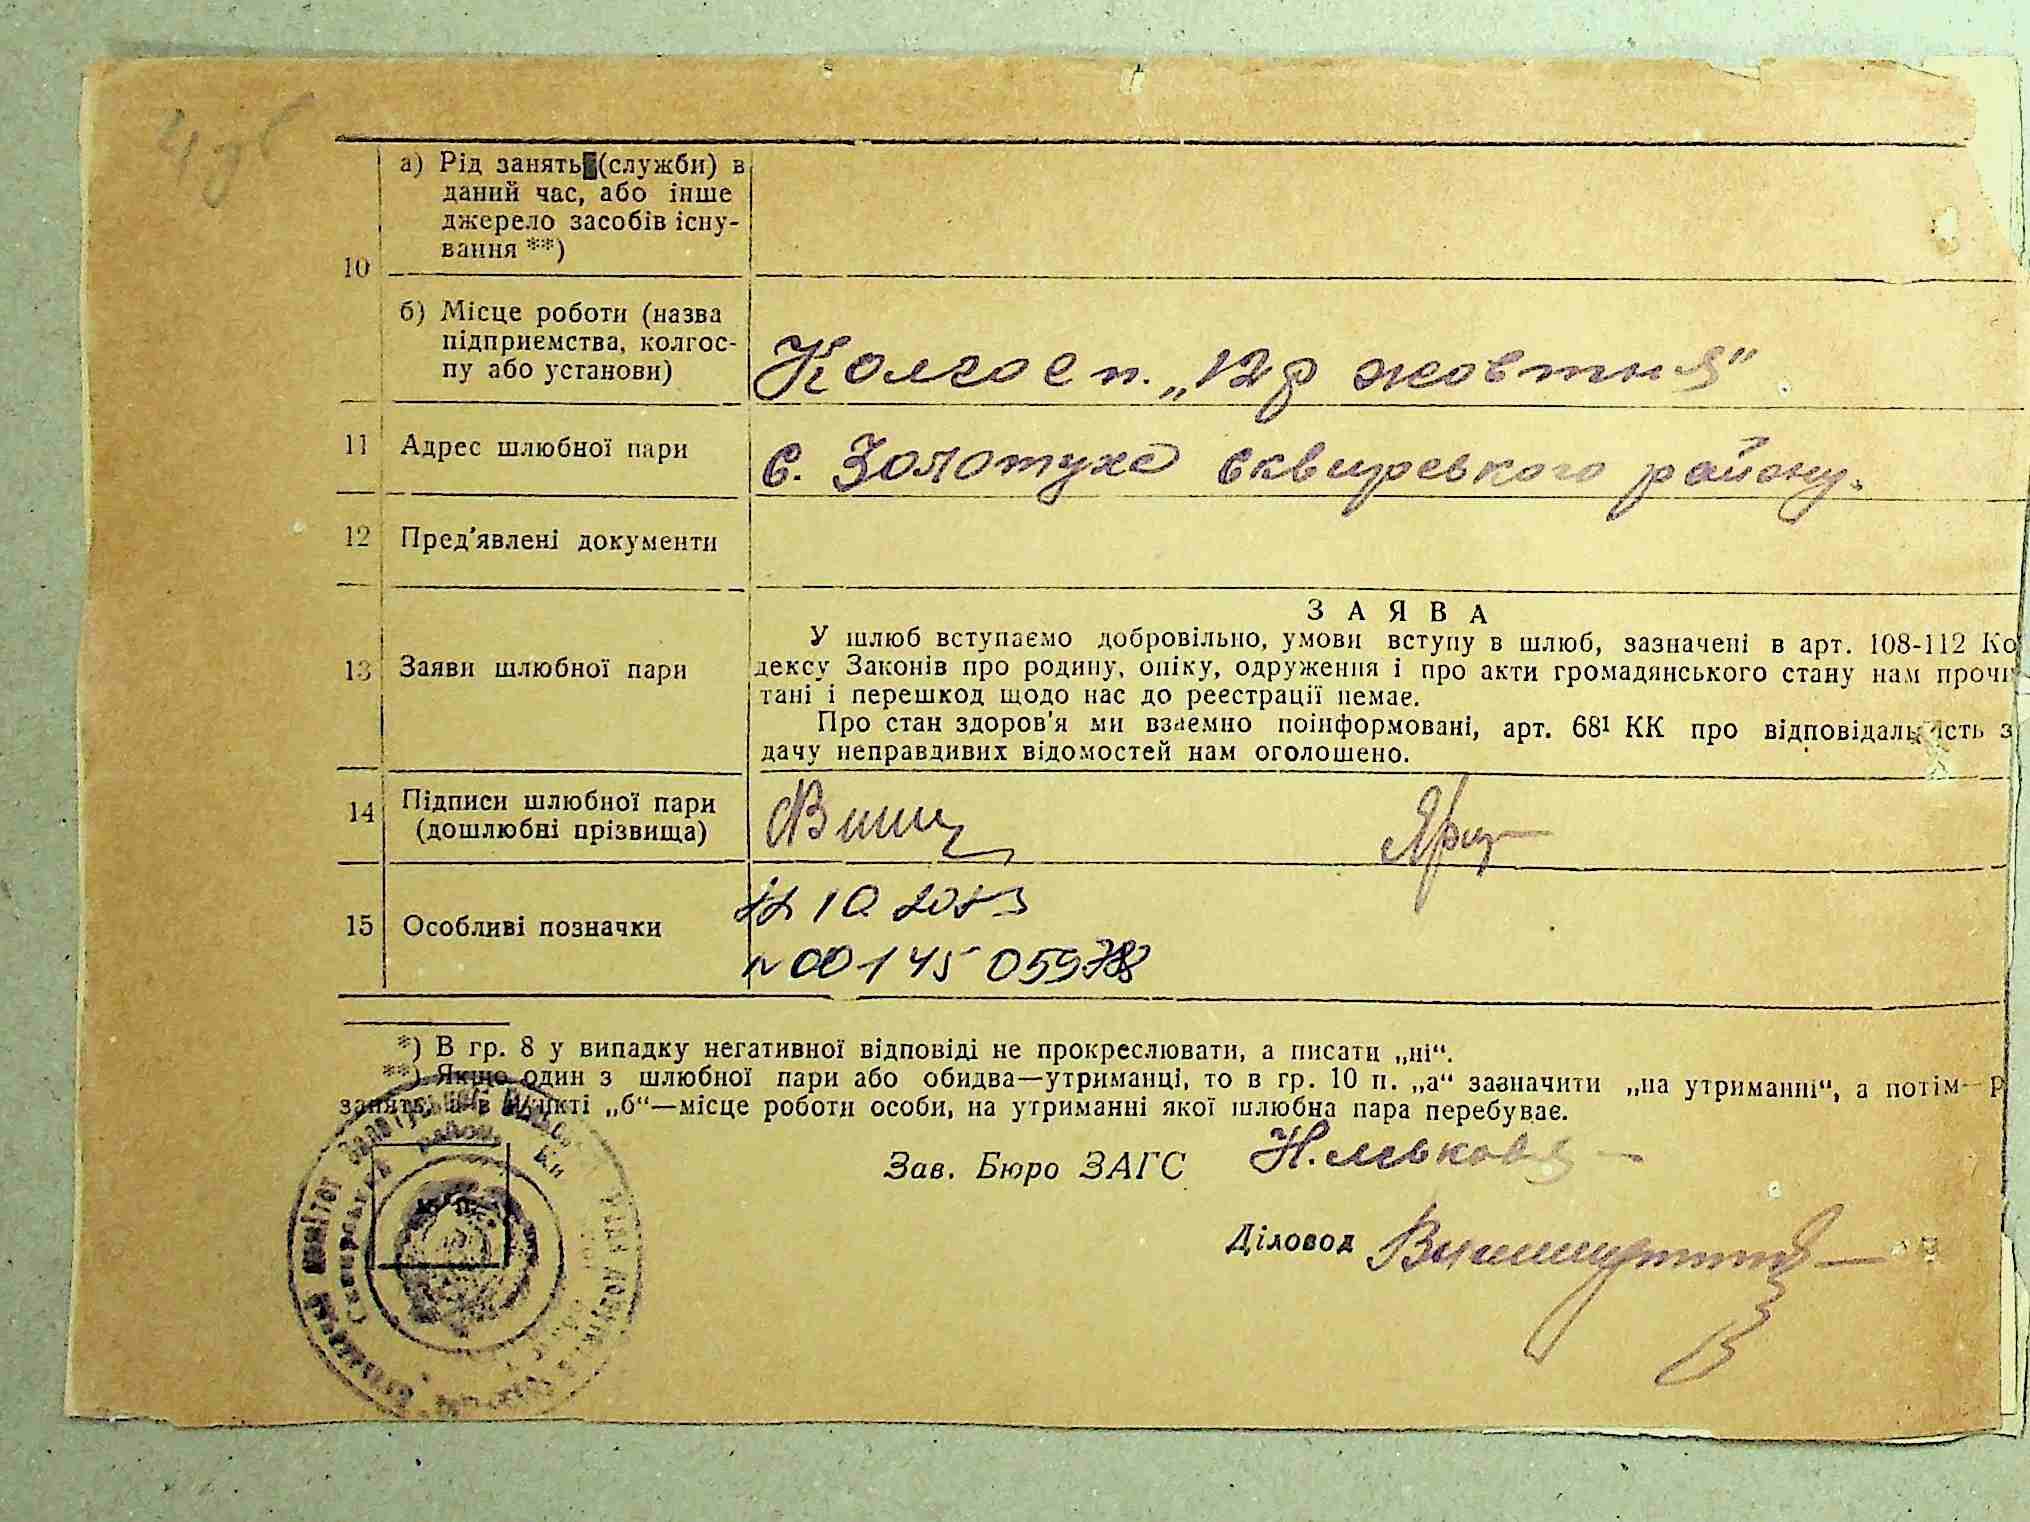 10
а) Рід занять (служби) в
даний час, або інше
джерело засобів існу-
вання **)
б) Місце роботи (назва
підприємства, колгос-
пу або установи)
Колгосп. „12 р жовтня“
11 Адрес шлюбної пари
с. Золотуха Сквирського району.
12 Пред'явлені документи
13 Заяви шлюбної пари
ЗАЯВА
У шлюб вступаємо добровільно, умови вступу в шлюб, зазначені в арт. 108-112 Ко
дексу Законів про родину, опіку, одруження і про акти громадянського стану нам прочи
тані і перешкод щодо нас до реєстрації немає.
Про стан здоров'я ми взаємно поінформовані, арт. 68¹ КК про відповідальність з
дачу неправдивих відомостей нам оголошено.
14 Підписи шлюбної пари
(дошлюбні прізвища)
15 Особливі позначки
00145059788
*) В гр. 8 у випадку негативної відповіді не прокреслювати, а писати „ні“.
**) Якщо один з шлюбної пари або обидва—утриманці, то в гр. 10 п. „а“ зазначити „на утриманні“, а потім—р
занять, а в пункті „б“—місце роботи особи, на утриманні якої шлюбна пара перебуває.
Зав. Бюро ЗАГС
Діловод